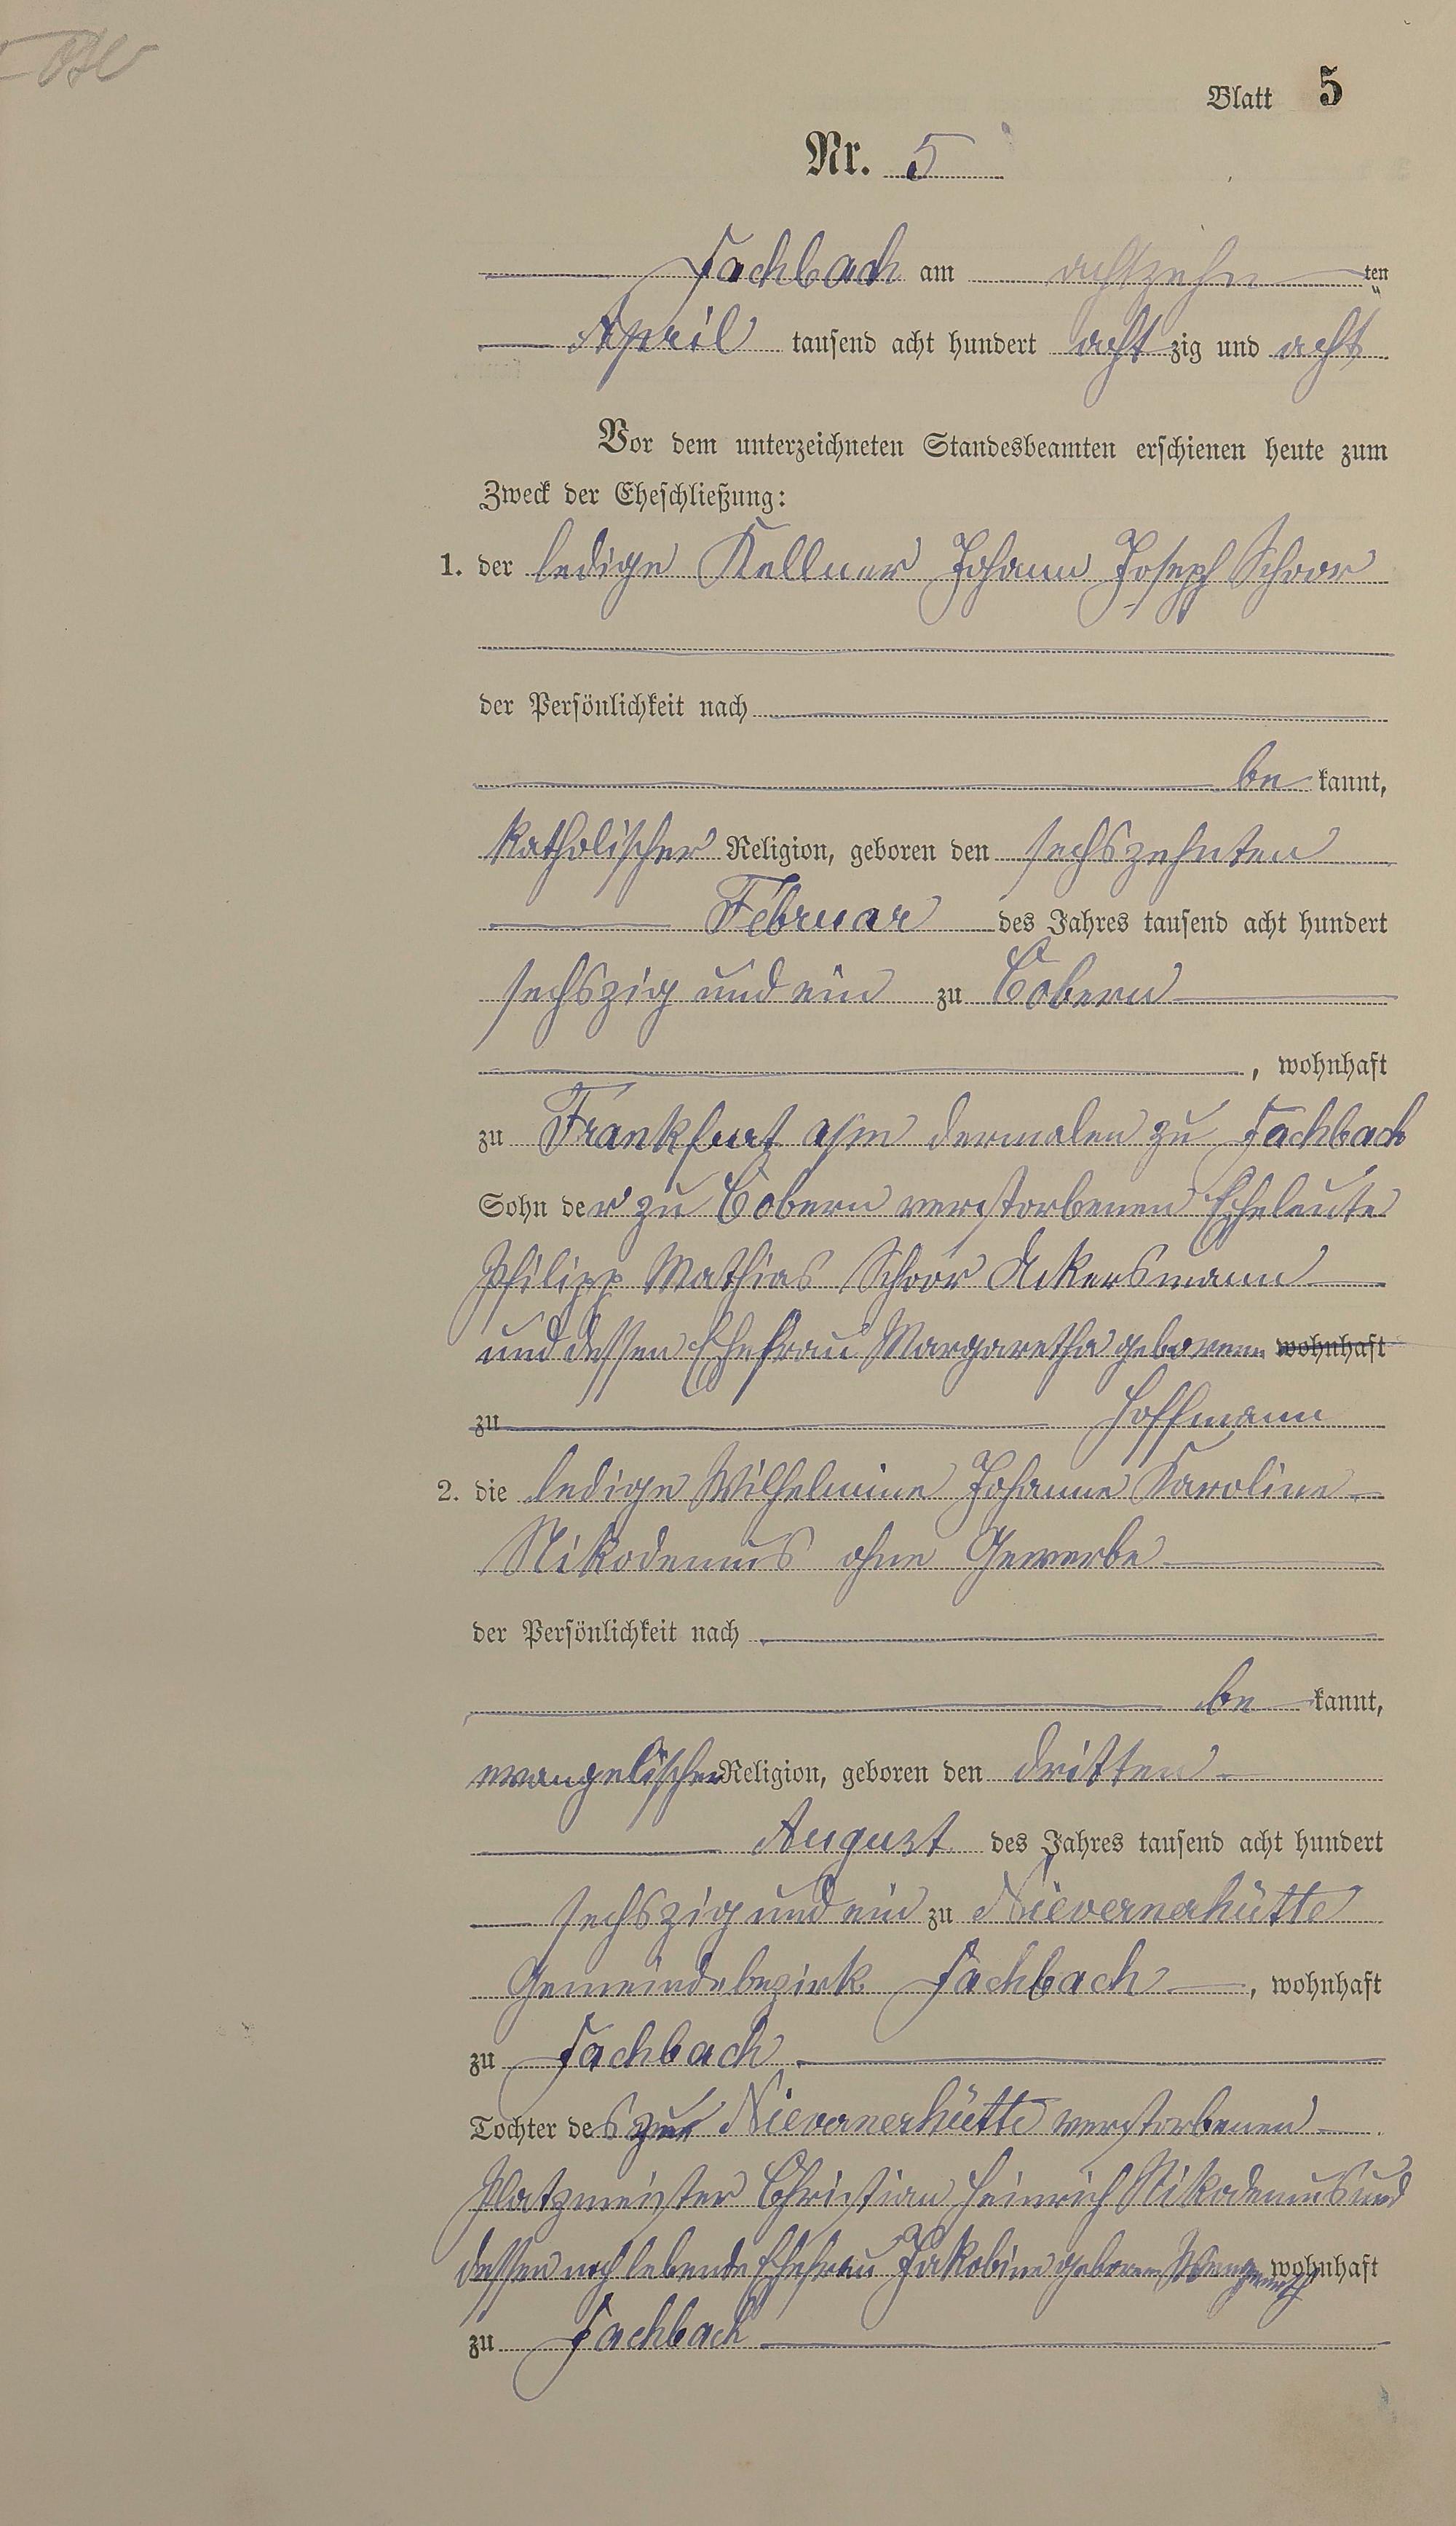 Blatt 5
Nr. 5
Fachbach am achtzehn ten
April tausend acht hundert acht zig und acht
Vor dem unterzeichneten Standesbeamten erschienen heute zum
Zweck der Eheschließung:
1. der ledige Kellner Johann Joseph Schoor
der Persönlichkeit nach
be kannt,
katholischer Religion, geboren den sechszehnten
Februar des Jahres tausend acht hundert
sechszig und ein zu Cobern
, wohnhaft
zu Frankfurt a/m dermalen zu Fachbach
Sohn der zu Cobern verstorbenen Eheleute
Philipp Mathias Schoor Ackersmann
und dessen Ehefrau Margaretha geborene wohnhaft
zu Hoffmann
2. die ledige Wilhelmine Johanne Karoline
Nikodemus ohne Gewerbe
der Persönlichkeit nach
be kannt,
evangelischer Religion, geboren den dritten
August des Jahres tausend acht hundert
sechszig und ein zu Nievernerhütte
Gemeindebezirk Fachbach , wohnhaft
zu Fachbach
Tochter des zur Nievernerhütte verstorbenen
Platzmeister Christian Heinrich Nikodemus und
dessen noch lebende Ehefrau Jakobine geborene wohnhaft
zu Fachbach